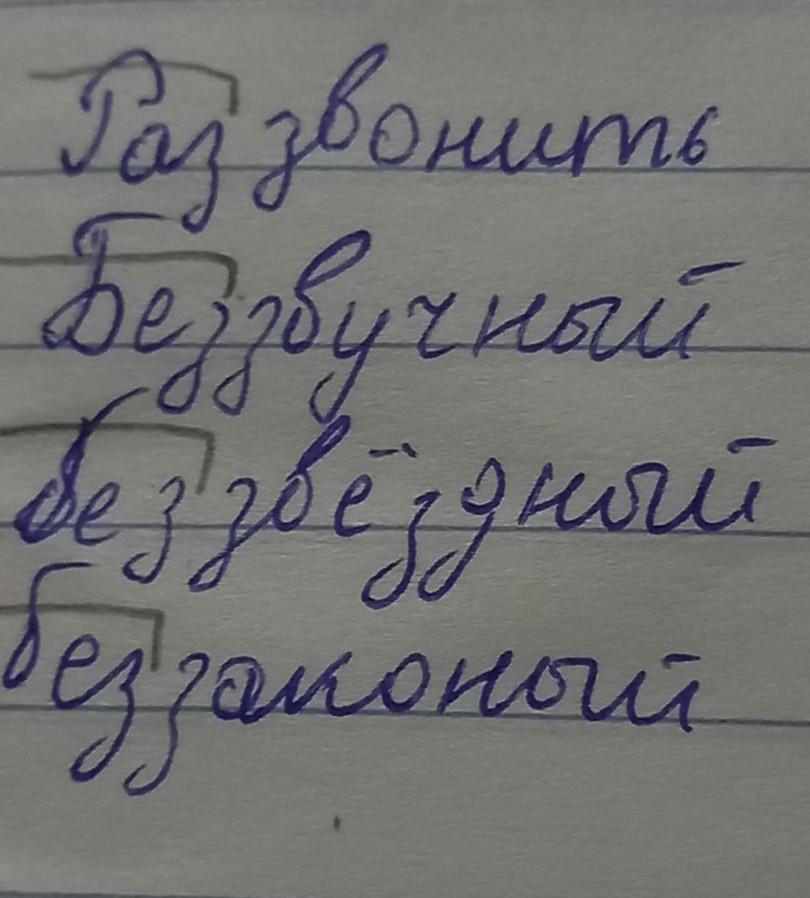 Раззвонить
Беззвучный
беззвёздный
беззаконый